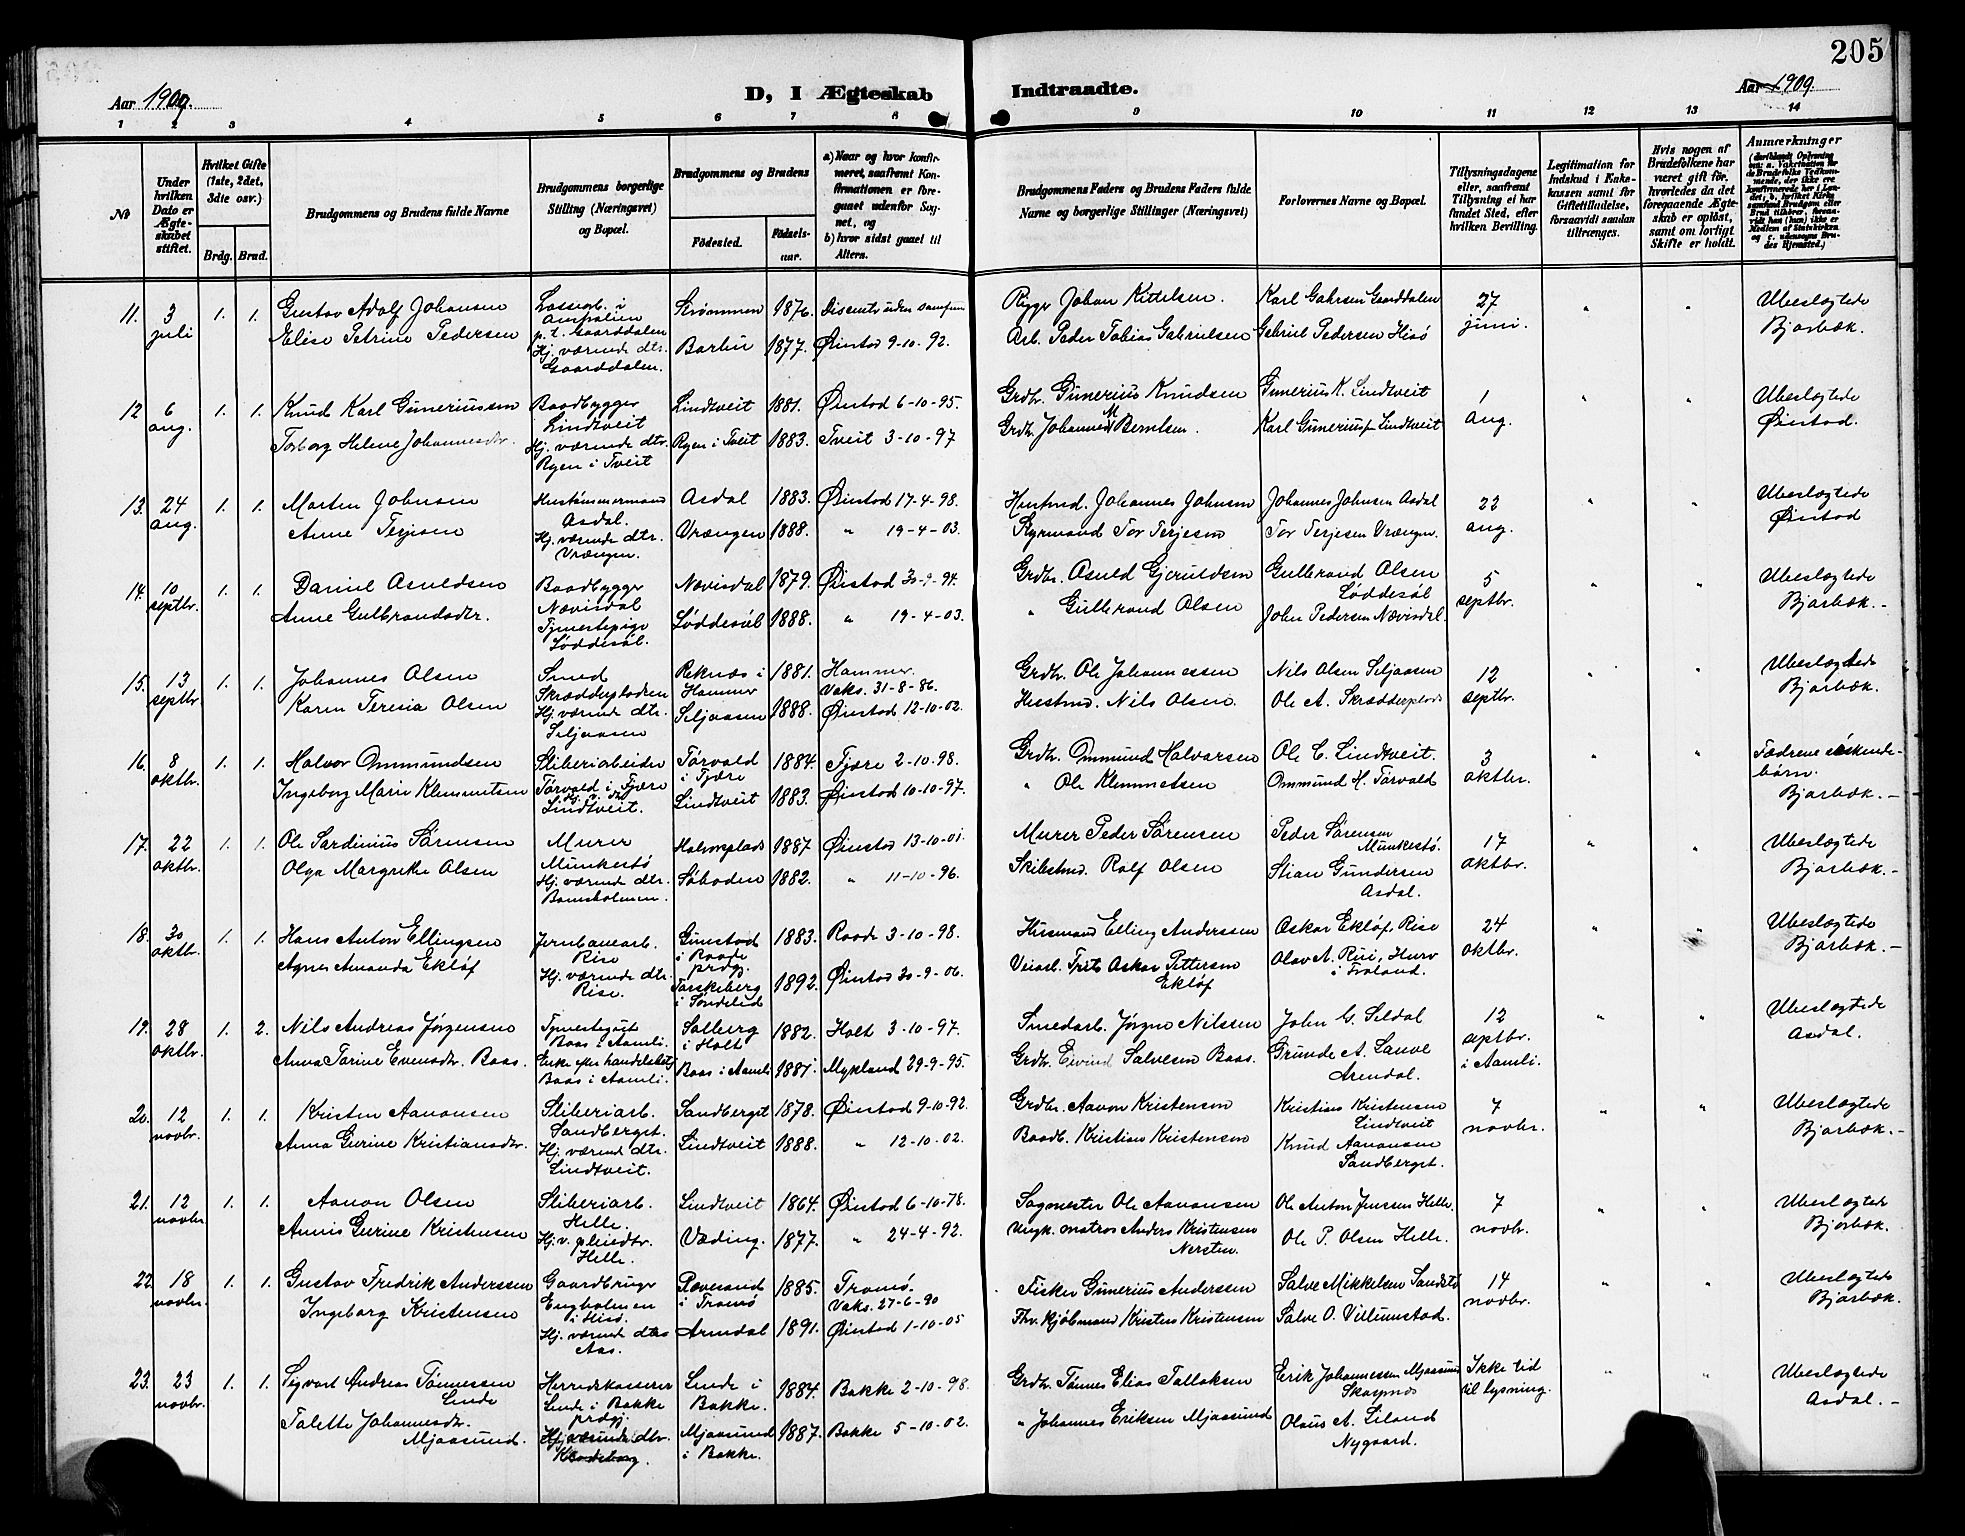 205
Aar 1909.
D, I Ægteskab Indtraadte.
Aar 1909.
1 2 3 4 5 6 7 8 9 10 11 12 13 14
№
Under hvilken Dato er Ægteskabet stiftet.
Hvilket Gifte (1ste, 2det, 3die osv.)
Brdg. Brud.
Brudgommens og Brudens fulde Navne
Brudgommens borgerlige Stilling (Næringsvei) og Bopæl.
Brudgommens og Brudens
Födested.
Födselsaar.
a) Naar og hvor konfirmeret, saafremt Konfirmationen er foregaaet udenfor Sognet, og
b) hvor sidst gaaet til Alters.
Brudgommens Faders og Brudens Faders fulde Navne og borgerlige Stillinger (Næringsvei)
Forlovernes Navne og Bopæl.
Tillysningsdagene eller, saafremt Tillysning ei har fundet Sted, efter hvilken Bevilling.
Legitimation for Indskud i Enkekassen samt for Giftetilladelse, forsaavidt saadan tiltrænges.
Hvis nogen af Brudefolkene har været gift för, hvorledes da det foregaaende Ægteskab er oplöst, samt om lovligt Skifte er holdt.
Anmærkninger
11. 3 juli 1. 1. Gustav Adolf Johansen
Australien p. t. Gaarddalen Strömmen 1876. Dissenter uden samfund
Rigger Johan Kittelsen. Karl Gahrsen Gaarddalen 27 juni. " " Ubeslægtede Bjorbæk.
Elise Petrine Pedersen Hj. værende dtr. Gaarddalen. Barbu 1877. Øiestad 9-10-92.
Arb. Peder Tobias Gabrielsen Gabriel Pedersen Hisö
12 6 aug. 1. 1. Knud Karl Guneriussen Baadbygger Lindtveit Lindtveit 1881. Øiestad 6-10-95.
Grdbr. Gunerius Knudsen Gunerius K. Lindtveit 1 aug. " " Ubeslægtede Øiestad.
Torborg Helene Johannesdtr. Hj. værende dtr. Ryen i Tveit Ryen i Tveit 1883. Tveit 3-10-97
Grdbr. Johannes M Berntsen. Karl Gunerius Lindtveit
13. 24 aug. 1. 1. Morten Johnsen Hustömmermand Asdal. Asdal 1883. Øiestad 17-4-98.
Husmd. Johannes Johnsen Johannes Johnsen Asdal 22 aug. " " Ubeslægtede Øiestad
Anne Terjesen Hj. værende dtr. Vrængen. Vrængen 1888. " 19-4-03.
Styrmand Tor Terjesen Tor Terjesen Vrængen.
14. 10 septbr. 1. 1. Daniel Asuldsen Baadbygger Nævisdal Nævisdal 1879. Øiestad 30-9-94.
Grdbr. Asuld Gjeruldsen Gulbrand Olsen Löddesöl 5 septbr. " " Ubeslægtede Bjorbæk.
Anne Gulbrandsdtr. Tjenestepige Löddesöl. Löddesöl 1888. " 19-4-03.
" Gulbrand Olsen John Pedersen Nævisdal.
15. 13 septbr 1. 1. Johannes Olsen Smed Skrædderpladsen Reknæs i Hammer 1881. Hammer. Vaks. 31-8-86.
Grdbr. Ole Johannessen Nils Olsen Siljaasen 12 septbr. " " Ubeslægtede Bjorbæk.
Karen Teresia Olsen Hj. værende dtr. Siljaasen Siljaasen 1888. Øiestad 12-10-02.
Husmd. Nils Olsen. Ole A. Skrædderplads
16. 8 oktbr. 1. 1. Halvor Ommundsen Sliberiarbeider Torvald i Fjære Torvald i Fjære 1884. Fjære 2-10-98.
Grdbr. Ommund Halvorsen Ole C. Lindtveit. 3 oktbr. " " Fædrene söskendebörn. Bjorbæk.
Ingeborg Marie Klemmetsen Lindtveit. Lindtveit 1883. Øiestad 10-10-97.
" Ole Klemmetsen Ommund H. Torvald
17. 22 oktbr. 1. 1. Ole Sardinius Sörensen Murer Munkestö Halvorsplads 1887 Øiestad 13-10-01.
Murer Peder Sörensen Peder Sörensen Munkestö. 17 oktbr. " " Ubeslægtede Bjorbæk.
Olga Margrethe Olsen Hj. værende dtr. Söboden 1882. " 11-10-96.
Skibstmd. Rolf Olsen Stian Gundersen Asdal.
18. 30 oktbr. 1. 1. Hans Anton Ellingsen Jernbanearb. Rise Gunstad i Raade prdgj. 1883. Raade 3-10-98.
Husmand Elling Anderssen Oskar Eklöf, Rise 24 oktbr. " " Ubeslægtede Bjorbæk.
Agnes Amanda Eklöf Hj. værende dtr. Rise. Torskeberg i Söndeled 1892. Øiestad 30-9-06.
Veiarb. Frits Oskar Pettersen Eklöf Olav A. Rui, Hurv i Froland.
19. 28 oktbr. 1. 2. Nils Andreas Jörgensen Tjenestegut Baas i Aamli. Solberg i Holt 1882. Holt 3-10-97.
Smedarb. Jörgen Nilssen John G. Seldal 12 septbr. i Aamli. " " Ubeslægtede Asdal.
Anna Torine Evensdtr. Baas. Enke efter handelsbetj. Baas i Aamli. Baas i Aamli 1881. Mykland 29-9-95.
Grdbr. Eivind Salvesen Baas. Grunde A. Lauve Arendal.
20. 12 novbr. 1. 1. Kristen Aanonsen Sliberiarb. Sandberget. Sandberget 1878. Øiestad 9-10-92.
Grdbr. Aanon Kristensen Kristian Kristensen Lindtveit 7 novbr. " " Ubeslægtede Bjorbæk.
Anna Gurine Kristiansdtr. Hj. værende dtr. Lindtveit. Lindtveit 1888. " 12-10-02.
Baadb. Kristian Kristensen Knud Aanonsen Sandberget.
21. 12 novbr 1. 1. Aanon Olsen Sliberiarb. Helle. Lindtveit 1864. Øiestad 6-10-78.
Sagmester Ole Aanonsen Ole Anton Jensen Helle. 7 novbr. " " Ubeslægtede Bjorbæk.
Annie Gurine Kristensen Hj. v. pleiedtr. Helle. Væding. 1877. " 24-4-92.
Ungk. matros Anders Kristensen Nersten. Ole P. Olsen Helle.
22. 18 novbr. 1. 1. Gustav Fredrik Anderssen Gaardbruger Engholmen i Hisö. Revesand i Tromö 1885. Tromö. Vaks. 27-6-90
Fisker Gunerius Anderssen Salve Mikkelsen Sandstö 14 novbr. " " Ubeslægtede Bjorbæk.
Ingeborg Kristensen Hj. værende dtr Aas. Arendal 1891. Øiestad 1-10-05
Fhv. kjöbmand Kristen Kristensen Salve O. Villumstad.
23. 23 novbr. 1. 1. Sigvart Andreas Tönnessen Linde Herredskasserer Linde i Bakke prdgj. Linde i Bakke. 1884. Bakke 2-10-98.
Grdbr. Tönnes Elias Tollaksen Erik Johannessen Mjaasund Ikke tid til lysning. " " Ubeslægtede Asdal.
Talette Johannesdtr. Mjaasund. Hj. værende dtr. Mjaasund i Bakke. 1887. Bakke 5-10-02.
" Johannes Eriksen Mjaasund Olaus A. Liland Nygaard.